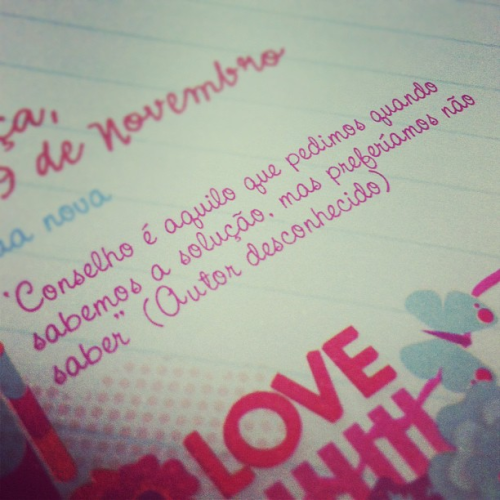 ça,
9 de Novembro
nova
"Conselho é aquilo que pedimos quando
sabemos a solução, mas preferíamos não
saber" (Autor desconhecido)
LOVE